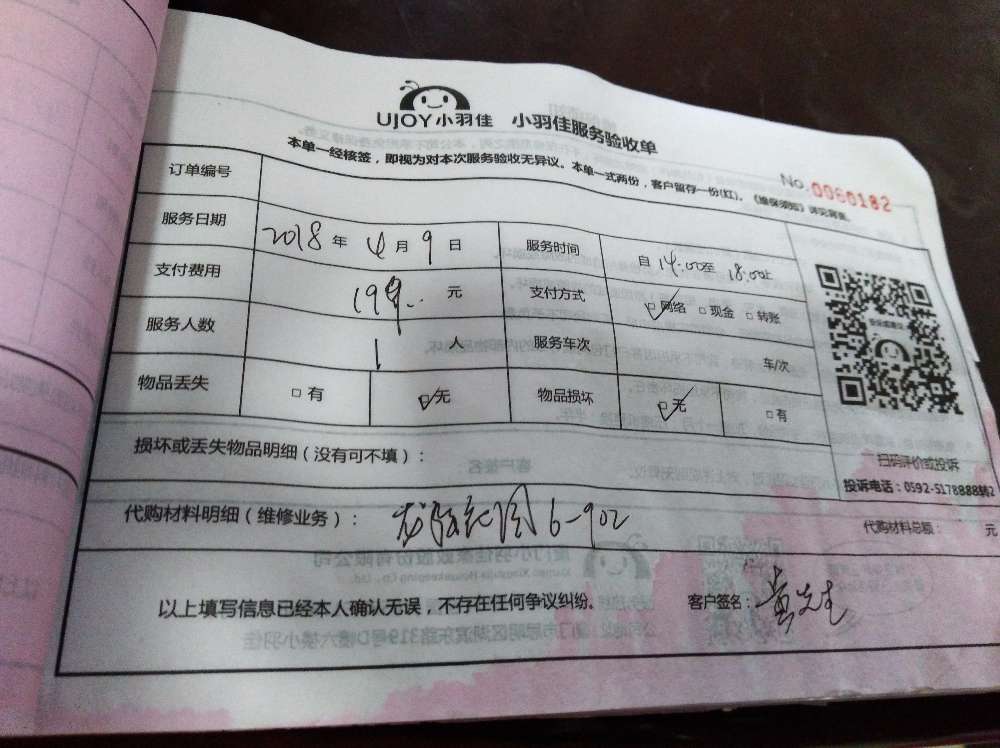 UJOY小羽佳 小羽佳服务验收单
本单一经核签，即视为对本次服务验收无异议。本单一式两份，客户留存一份(红)。《维保须知》详见背面。
No.0060182
订单编号
服务日期 2018 年 4 月 9 日 服务时间 自 14:00至 18:00止
支付费用 199.. 元 支付方式 □网络 □现金 □转账
服务人数 1 人 服务车次 车/次
物品丢失 □有 □无 物品损坏 □无 □有
扫码评价或投诉
投诉电话：0592-5178888转2
损坏或丢失物品明细（没有可不填）：
代购材料明细（维修业务）： 花园6-902 代购材料总额： 元
以上填写信息已经本人确认无误，不存在任何争议纠纷。 客户签名：黄先生